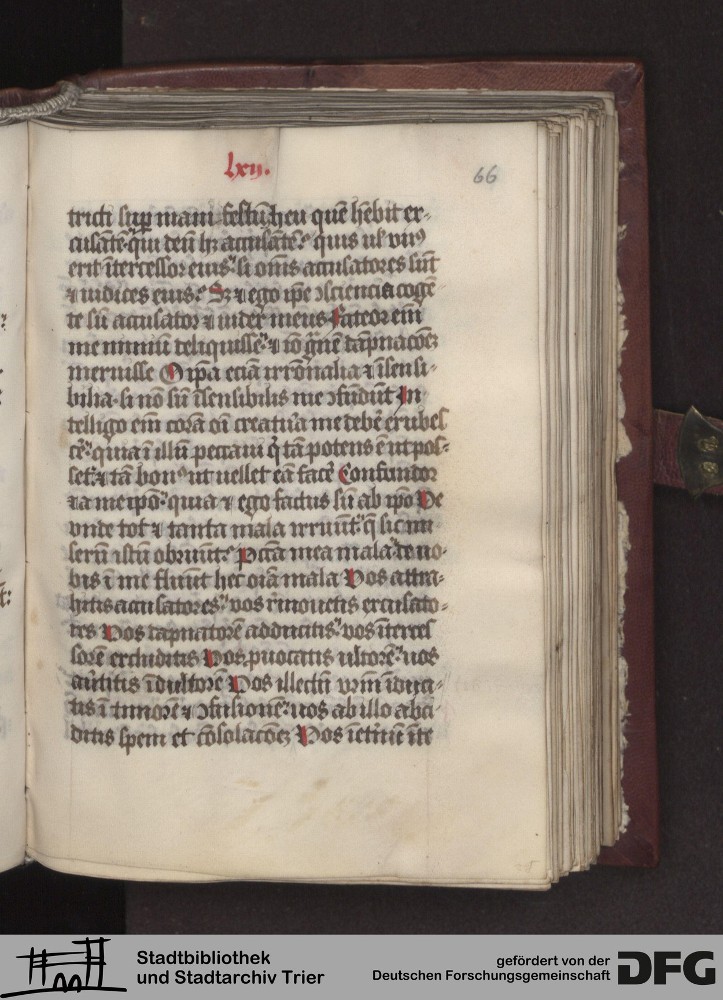 lxij.
66
tricti sup mani festū heu quē hēbit ex-
cusātē qui deū hʒ accusātē quis ul' viꝰ
erit ītercessor eius si om̄s accusatores sūt
⁊ iudices eius Sʒ ⁊ ego ip̄e ɔsciencia cogē
te sū accusator ⁊ iudex meus fateor em̄
me nimiū deliquisse ⁊ iō g̃uē dāpnacōeʒ
meruisse O ip̄a eciā irrōnalia ⁊ īsensi-
bilia si nō sū īsensibilis me ɔfūdūt In
telligo em̄ corā oī creatura me debē erubes
cē quia ī illū peccaui q̇ tā potens ē ut pos-
set ⁊ tā bonꝰ ut uellet eā facē Confundor
⁊a me ip̄o quia ⁊ ego factus sū ab ip̄o Ve
vnde tot ⁊ tanta mala irruūt q̄ sic mi
serū istū obruūt Pctā mea mala de uo-
bis ī me fluūt hec oīa mala Vos attra-
hitis accusatores vos r̄mouetis excusato-
res Vos dāpnatorē adducitis vos īterces
sorē excluditis Vos ꝓuocatis ultorē uos
au̅titis īdultorē Vos illectū vrīm īduci-
tis ī timorē ⁊ ɔfusionē uos ab illo absci-
ditis spem et cōsolacōeʒ Vos
Stadtbibliothek
und Stadtarchiv Trier
gefördert von der
Deutschen Forschungsgemeinschaft
DFG